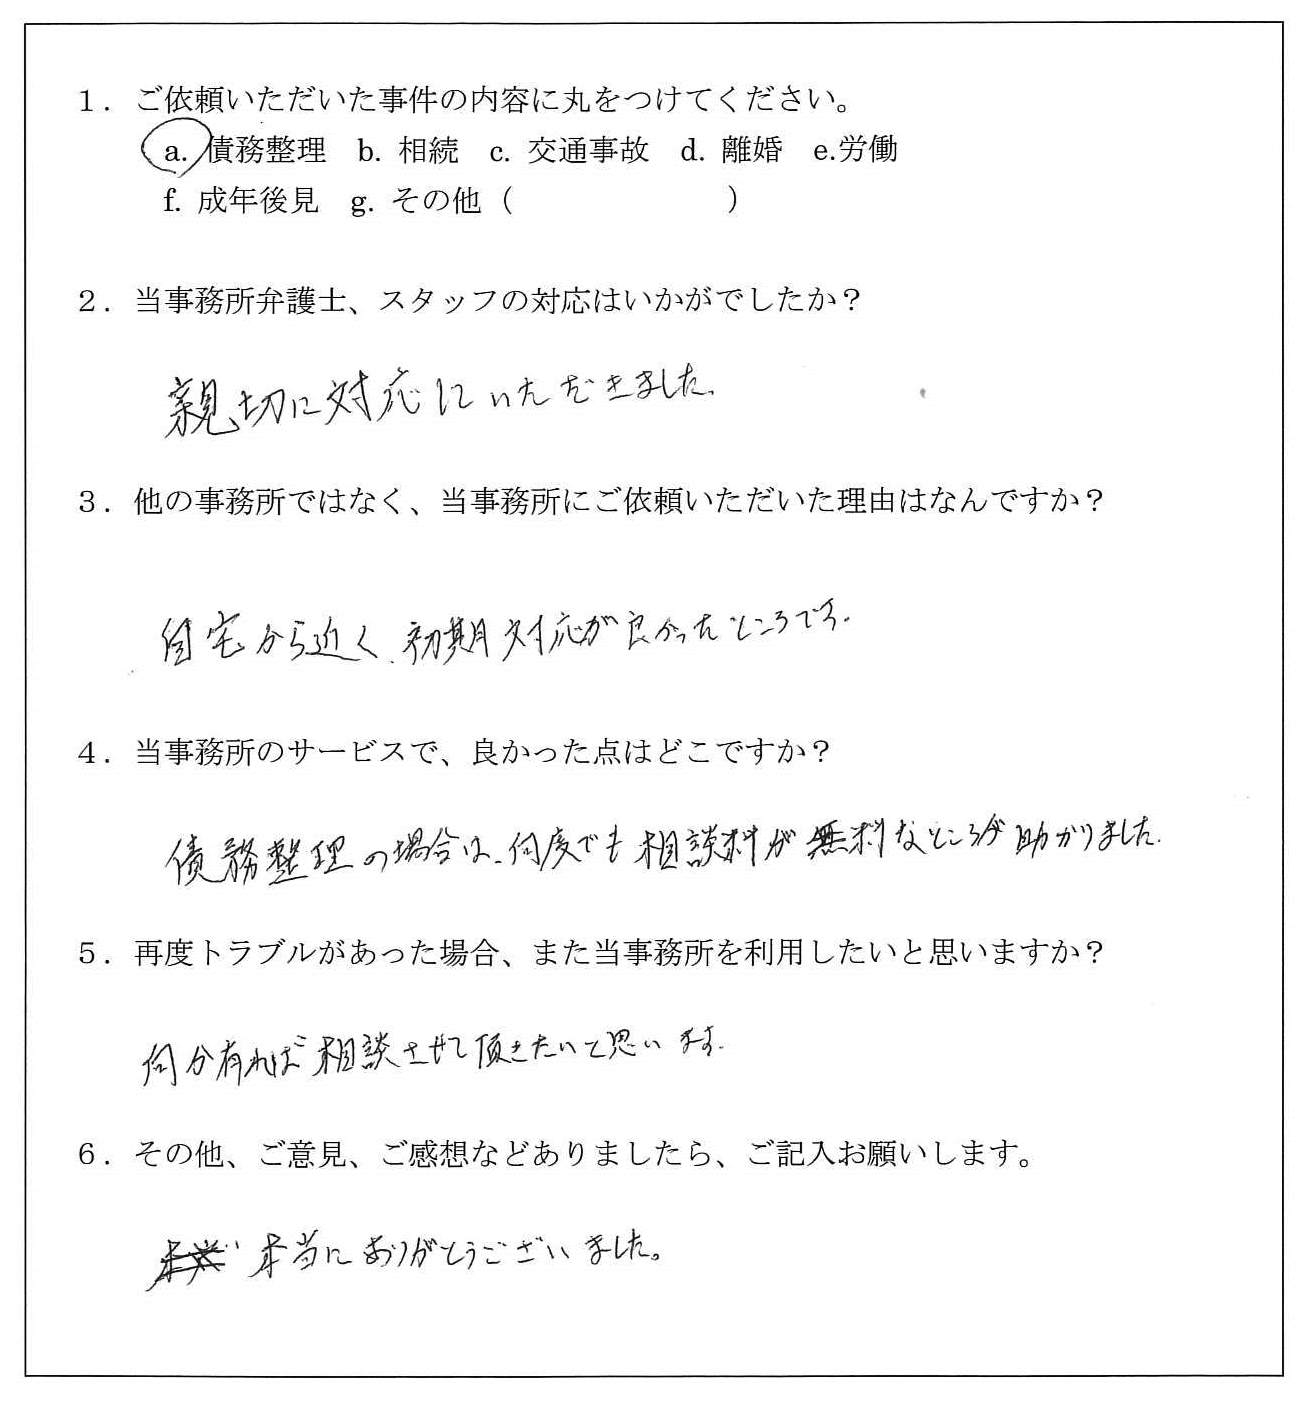 １．ご依頼いただいた事件の内容に丸をつけてください。
a. 債務整理　b. 相続　c. 交通事故　d. 離婚　e.労働
f. 成年後見　g. その他（　　　　　　　）
２．当事務所弁護士、スタッフの対応はいかがでしたか？
親切に対応していただきました。
３．他の事務所ではなく、当事務所にご依頼いただいた理由はなんですか？
自宅から近く、初期対応が良かったところです。
４．当事務所のサービスで、良かった点はどこですか？
債務整理の場合は、何度でも相談料が無料なところが助かりました。
５．再度トラブルがあった場合、また当事務所を利用したいと思いますか？
何か有れば相談させて頂きたいと思います。
６．その他、ご意見、ご感想などありましたら、ご記入お願いします。
本当にありがとうございました。